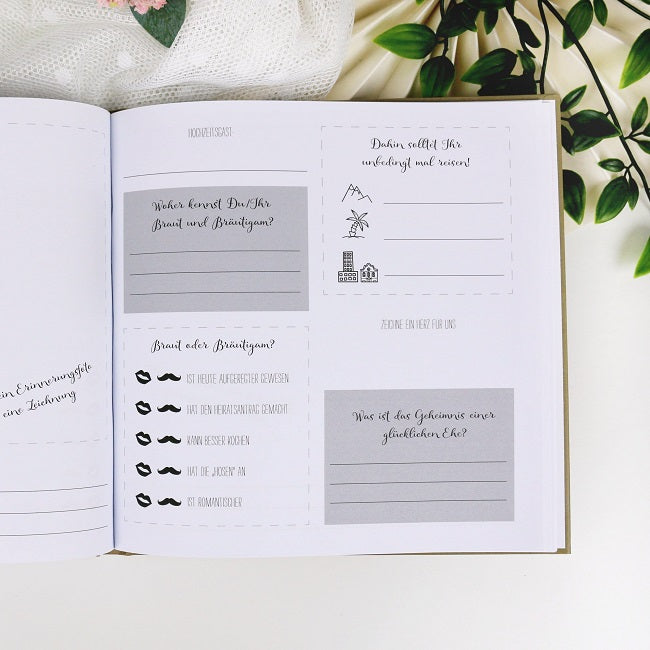 ein Erinnerungsfoto
eine Zeichnung
HOCHZEITSGAST:
Woher kennst Du/Ihr
Braut und Bräutigam?
Braut oder Bräutigam?
IST HEUTE AUFGEREGTER GEWESEN
HAT DEN HEIRATSANTRAG GEMACHT
KANN BESSER KOCHEN
HAT DIE „HOSEN" AN
IST ROMANTISCHER
Dahin solltet Ihr
unbedingt mal reisen!
ZEICHNE EIN HERZ FÜR UNS
Was ist das Geheimnis einer
glücklichen Ehe?